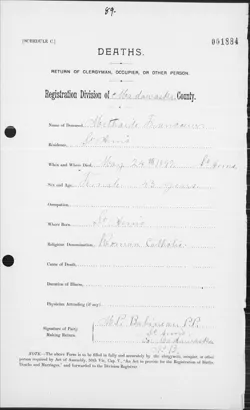 89.
[SCHEDULE C.]
001884
DEATHS.
RETURN OF CLERGYMAN, OCCUPIER, OR OTHER PERSON.
Registration Division of Madawaska County.
Name of Deceased,
Residence, St Anns
When and Where Died, May 24th St Anns
Sex and Age, Female years
Occupation,
Where Born, St Anns
Religious Denomination, Roman Catholic
Cause of Death,
Duration of Illness,
Physician Attending (if any),
Signature of Party P.P.
Making Return. St Anns
Co Madawaska
N.B.
NOTE.—The above Form is to be filled up fully and accurately by the clergyman, occupier, or other
person required by Act of Assembly, 50th Vic, Cap. V., "An Act to provide for the Registration of Births,
Deaths and Marriages," and forwarded to the Division Registrar